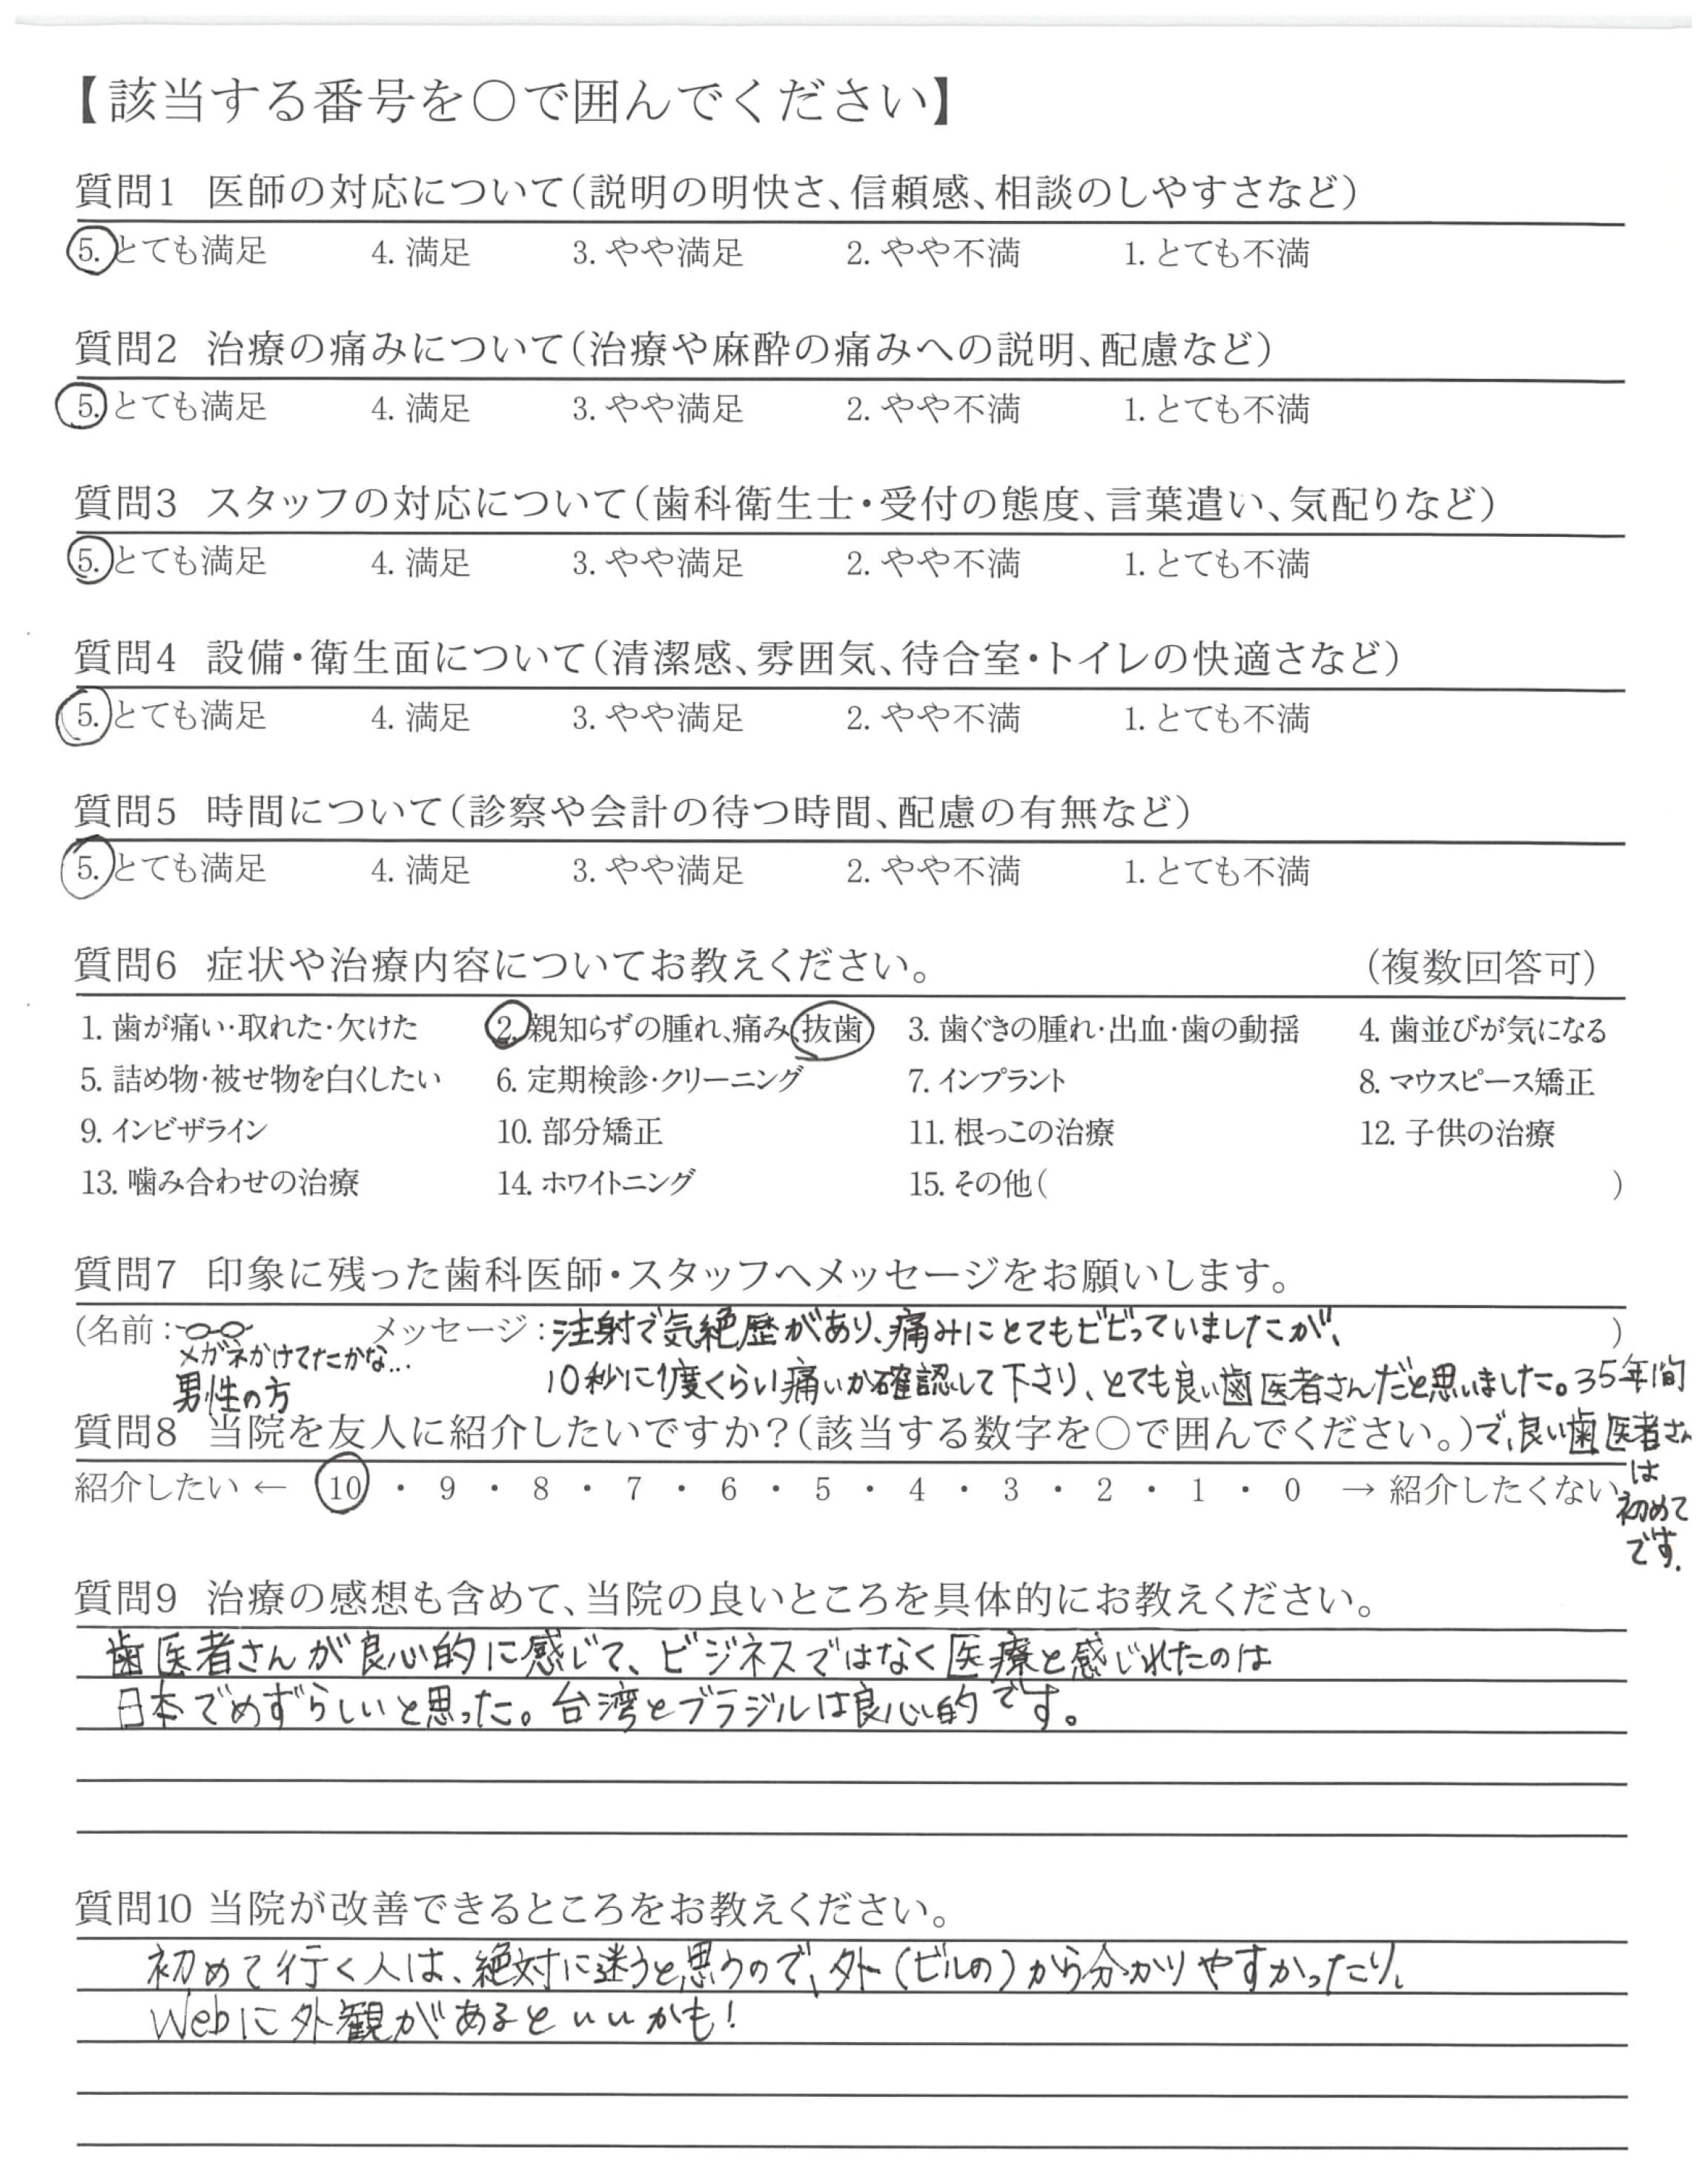 【該当する番号を○で囲んでください】
質問1 医師の対応について(説明の明快さ、信頼感、相談のしやすさなど)
5. とても満足 4. 満足 3. やや満足 2. やや不満 1. とても不満
質問2 治療の痛みについて(治療や麻酔の痛みへの説明、配慮など)
5. とても満足 4. 満足 3. やや満足 2. やや不満 1. とても不満
質問3 スタッフの対応について(歯科衛生士・受付の態度、言葉遣い、気配りなど)
5. とても満足 4. 満足 3. やや満足 2. やや不満 1. とても不満
質問4 設備・衛生面について(清潔感、雰囲気、待合室・トイレの快適さなど)
5. とても満足 4. 満足 3. やや満足 2. やや不満 1. とても不満
質問5 時間について(診察や会計の待つ時間、配慮の有無など)
5. とても満足 4. 満足 3. やや満足 2. やや不満 1. とても不満
質問6 症状や治療内容についてお教えください。 (複数回答可)
1. 歯が痛い・取れた・欠けた 2. 親知らずの腫れ、痛み、抜歯 3. 歯ぐきの腫れ・出血・歯の動揺 4. 歯並びが気になる
5. 詰め物・被せ物を白くしたい 6. 定期検診・クリーニング 7. インプラント 8. マウスピース矯正
9. インビザライン 10. 部分矯正 11. 根っこの治療 12. 子供の治療
13. 噛み合わせの治療 14. ホワイトニング 15. その他( )
質問7 印象に残った歯科医師・スタッフへメッセージをお願いします。
(名前: メッセージ:注射で気絶歴があり、痛みにとてもビビっていましたが、 )
メガネかけてたかな...
男性の方
10秒に1度くらい痛いか確認して下さり、とても良い歯医者さんだと思いました。35年間
で、良い歯医者さん
は
初めて
です.
質問8 当院を友人に紹介したいですか?(該当する数字を○で囲んでください。)
紹介したい ← 10 ・ 9 ・ 8 ・ 7 ・ 6 ・ 5 ・ 4 ・ 3 ・ 2 ・ 1 ・ 0 → 紹介したくない
質問9 治療の感想も含めて、当院の良いところを具体的にお教えください。
歯医者さんが良心的に感じて、ビジネスではなく医療と感じれたのは
日本でめずらしいと思った。台湾とブラジルは良心的です。
質問10 当院が改善できるところをお教えください。
初めて行く人は、絶対に迷うと思うので、外(ビルの)から分かりやすかったり、
Webに外観があるといいかも!